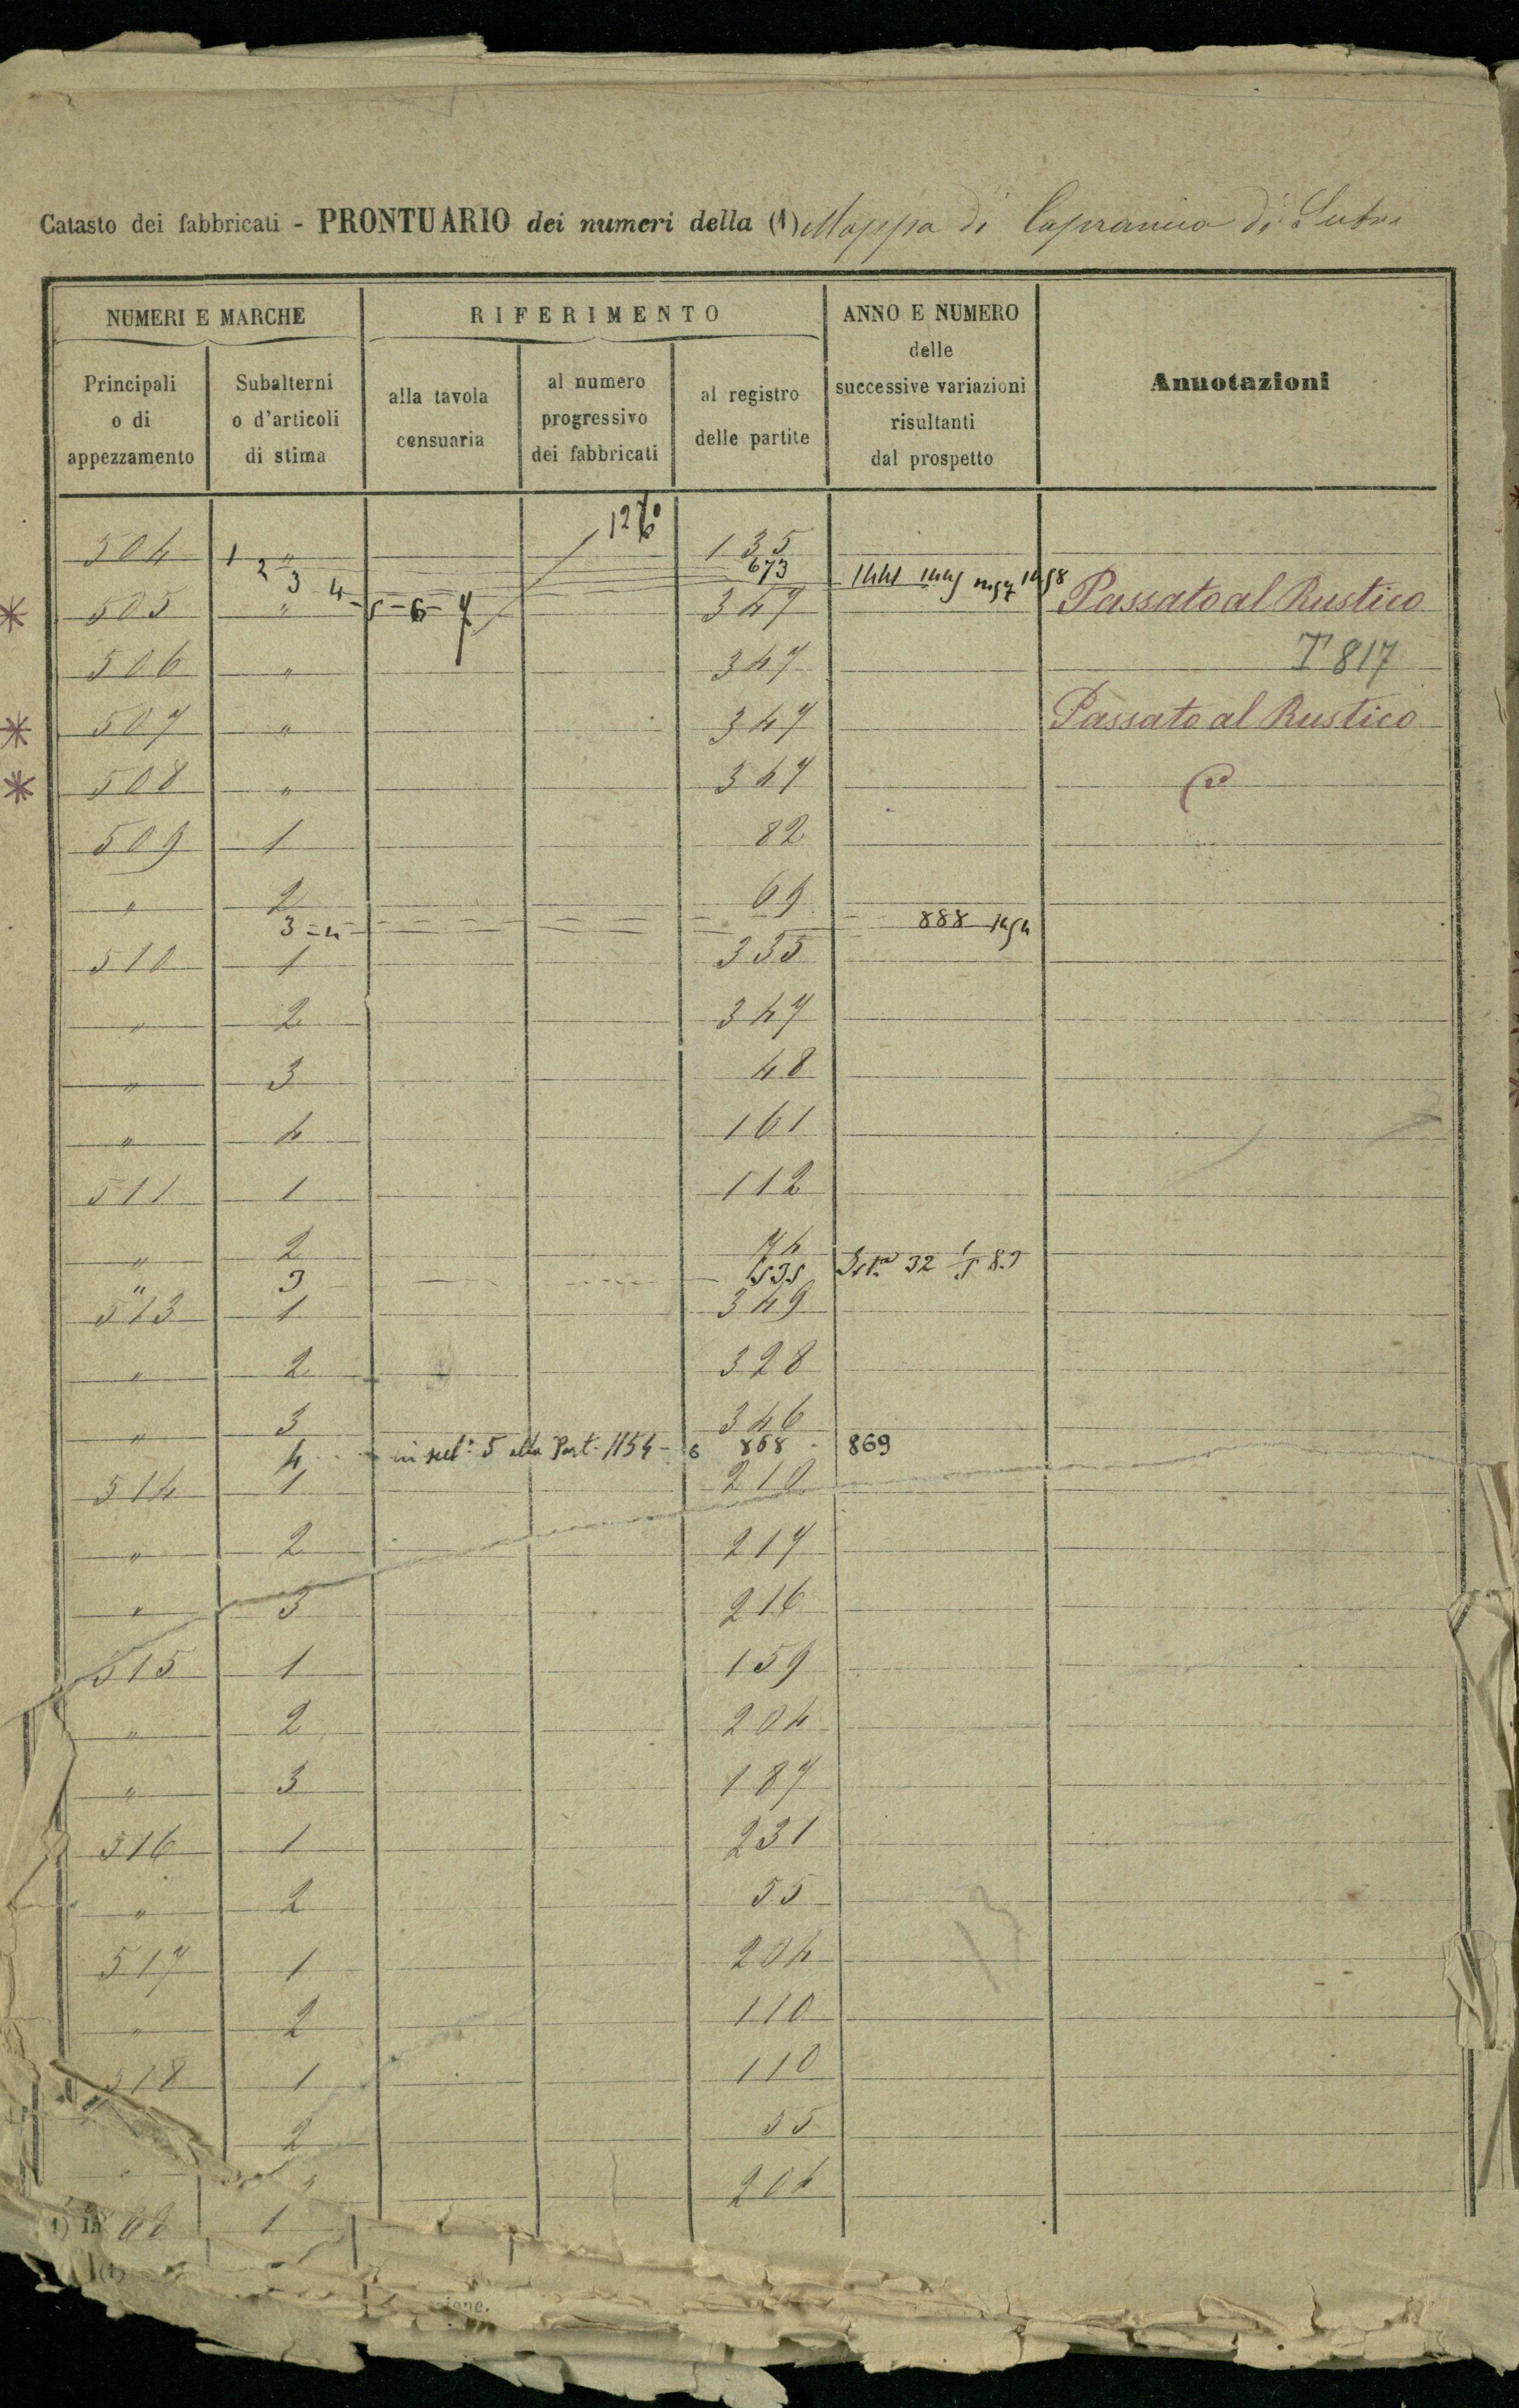 Catasto dei fabbricati - PRONTUARIO dei numeri della (1) Mappa di Capranica di Sutri
NUMERI E MARCHE
RIFERIMENTO
ANNO E NUMERO
delle
successive variazioni
risultanti
dal prospetto
Annotazioni
Principali
o di
appezzamento
Subalterni
o d'articoli
di stima
alla tavola
censuaria
al numero
progressivo
dei fabbricati
al registro
delle partite
504 1 " 135
2 3 4-5-6-7 673
505 " 347 Passato al Rustico
506 " 347 T 817
507 " 347 Passato al Rustico
508 " 347
509 1 82
" 2 69
3 - 4 888
510 1 335
" 2 347
" 3 48
" 4 161
511 1 112
" 2 74
" 3 1535
513 1 349
" 2 328
" 3 346
4 5 alla Part. 1154 - 868 - 869
514 1 210
" 2 217
" 3 216
515 1 159
" 2 204
" 3 187
516 1 231
" 2 55
517 1 204
" 2 110
518 1 110
2 55
" " 204
1